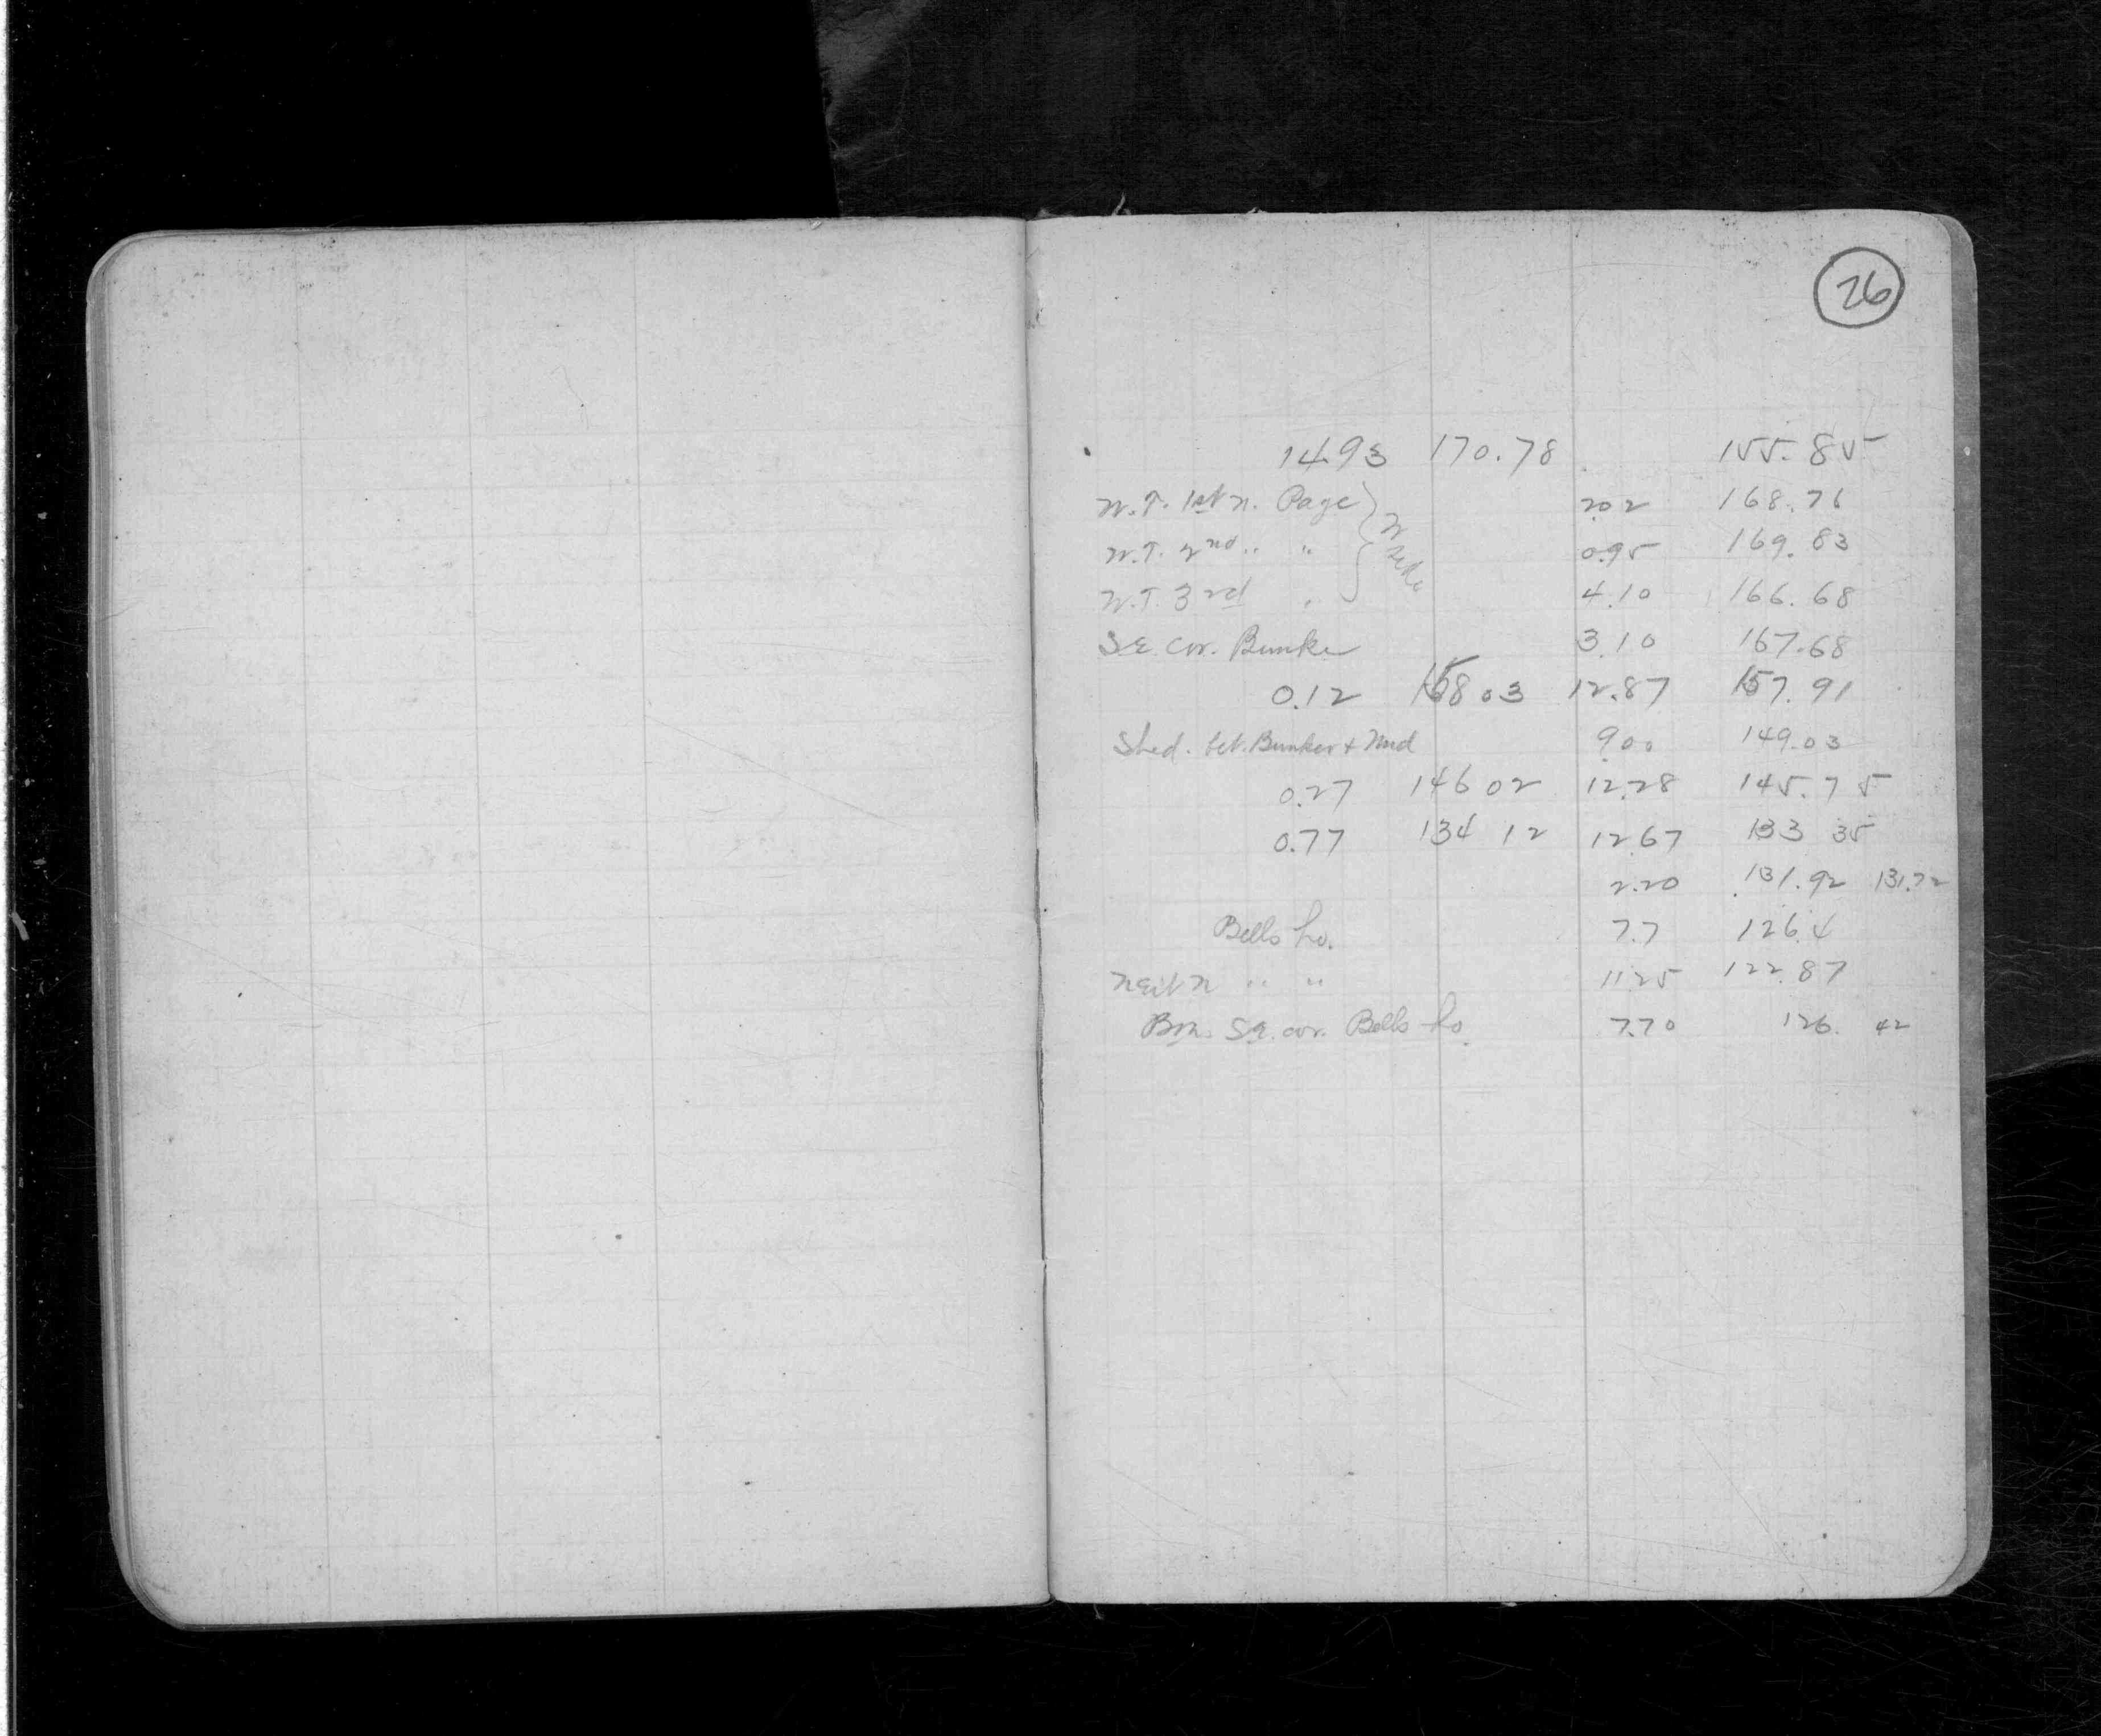 26
14.93 170.78 155.85
W.T. 1st N. Page } N side 2.02 168.76
W.T. 2nd " " 0.95 169.83
W.T. 3rd " 4.10 166.68
S.E. cor. Bunke 3.10 167.68
0.12 158 03 12.87 157.91
Shed. bet. Bunker + Mud 9 00 149.03
0.27 146 02 12.28 145.75
0.77 134 12 12.67 133 35
2.20 131.92 131.72
Bells ho. 7.7 126.4
Next N " " 11 25 122.87
B.m. S.E. cor. Bells ho. 7.70 126. 42